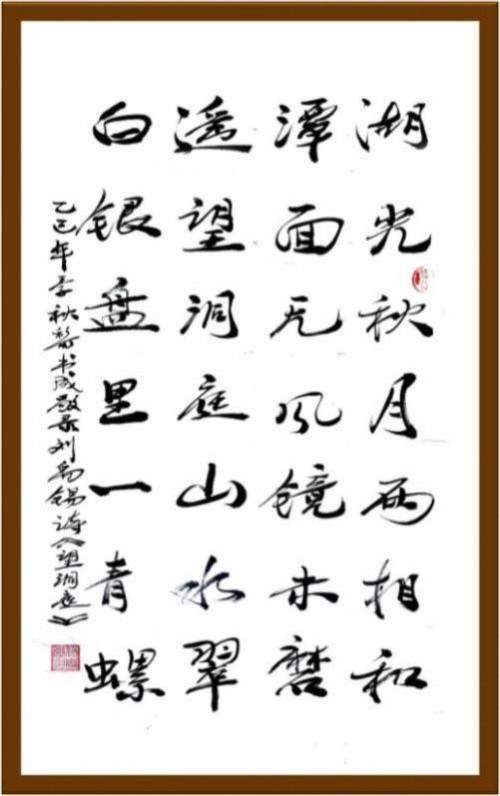 湖光秋月两相和
潭面无风镜未磨
遥望洞庭山水翠
白银盘里一青螺
乙巳年季秋 书成 录刘禹锡诗《望洞庭》